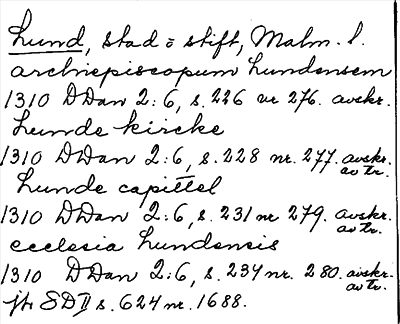 Lund, stad o stift, Malm. l.
archiepiscopum Lundensem
1310 DDan 2:6, s. 226 nr 276. avskr.
Lunde kircke
1310 DDan 2:6, s. 228 nr. 277. avskr. av tr.
Lunde capittel
1310 DDan 2:6, s. 231 nr 279. avskr. av tr.
ecclesia Lundensis
1310 DDan 2:6, s. 234 nr. 280. avskr. av tr.
jfr SD II s. 624 nr. 1688.